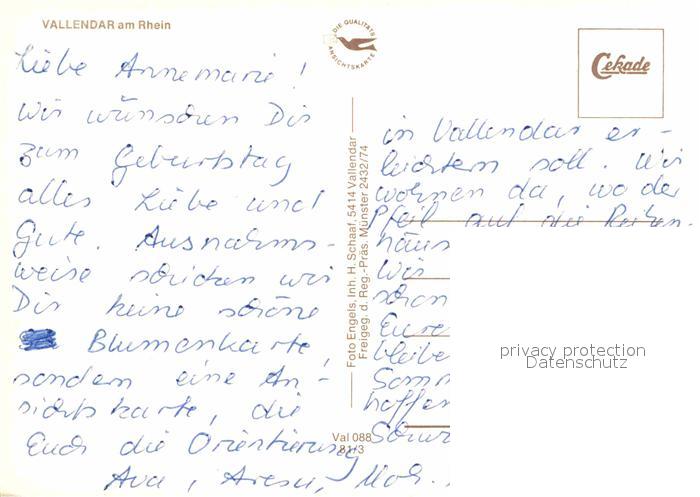 VALLENDAR am Rhein
DIE QUALITÄTS
ANSICHTSKARTE
Cekade
Liebe Annemarie!
Wir wünschen Dir
zum Geburtstag
alles Liebe und
Gute. Ausnahms-
weise schicken wir
Dir keine schöne
Blumenkarte,
sondern eine An-
sichtskarte, die
Euch die Orientierung
in Vallendar er-
leichtern soll. Wir
wohnen da, wo der
Pfeil auf die Reihen-
häus
Wir
schon
Eure
bleibe
Somm
hoffen
Schw
Foto Engels, Inh. H. Schaaf, 5414 Vallendar
Freigeg. d. Reg.-Präs. Münster 2432/74
Val 088
81/3
privacy protection
Datenschutz